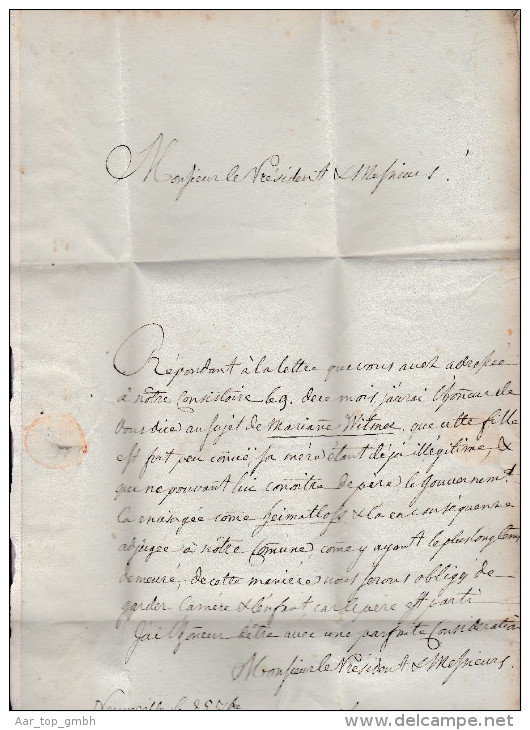 Monsieur le Président & Messieurs!
Répondant à la lettre que vous avez adressée
à nôtre Consistoire le 9. de ce mois, j'aurai l'honeur de
vous dire au sujet de Mariane Witmer, que cette fille
est fort peu sa mère étant déja illégitime, &
que ne pouvant lui conoitre de père le Gouvernemt.
l'a envisagée come heimatloss & l'a en conséquence
adjugée à nôtre Comune come y ayant le plus long tems
demeuré; de cette manière nous serons obligy de
garder la mère & l'enfant car le père est parti
J'ai l'honeur d'être avec une parfaite Considération
Monsieur le Président & Messieurs.
Neuveville le 25
Aar_top_gmbh